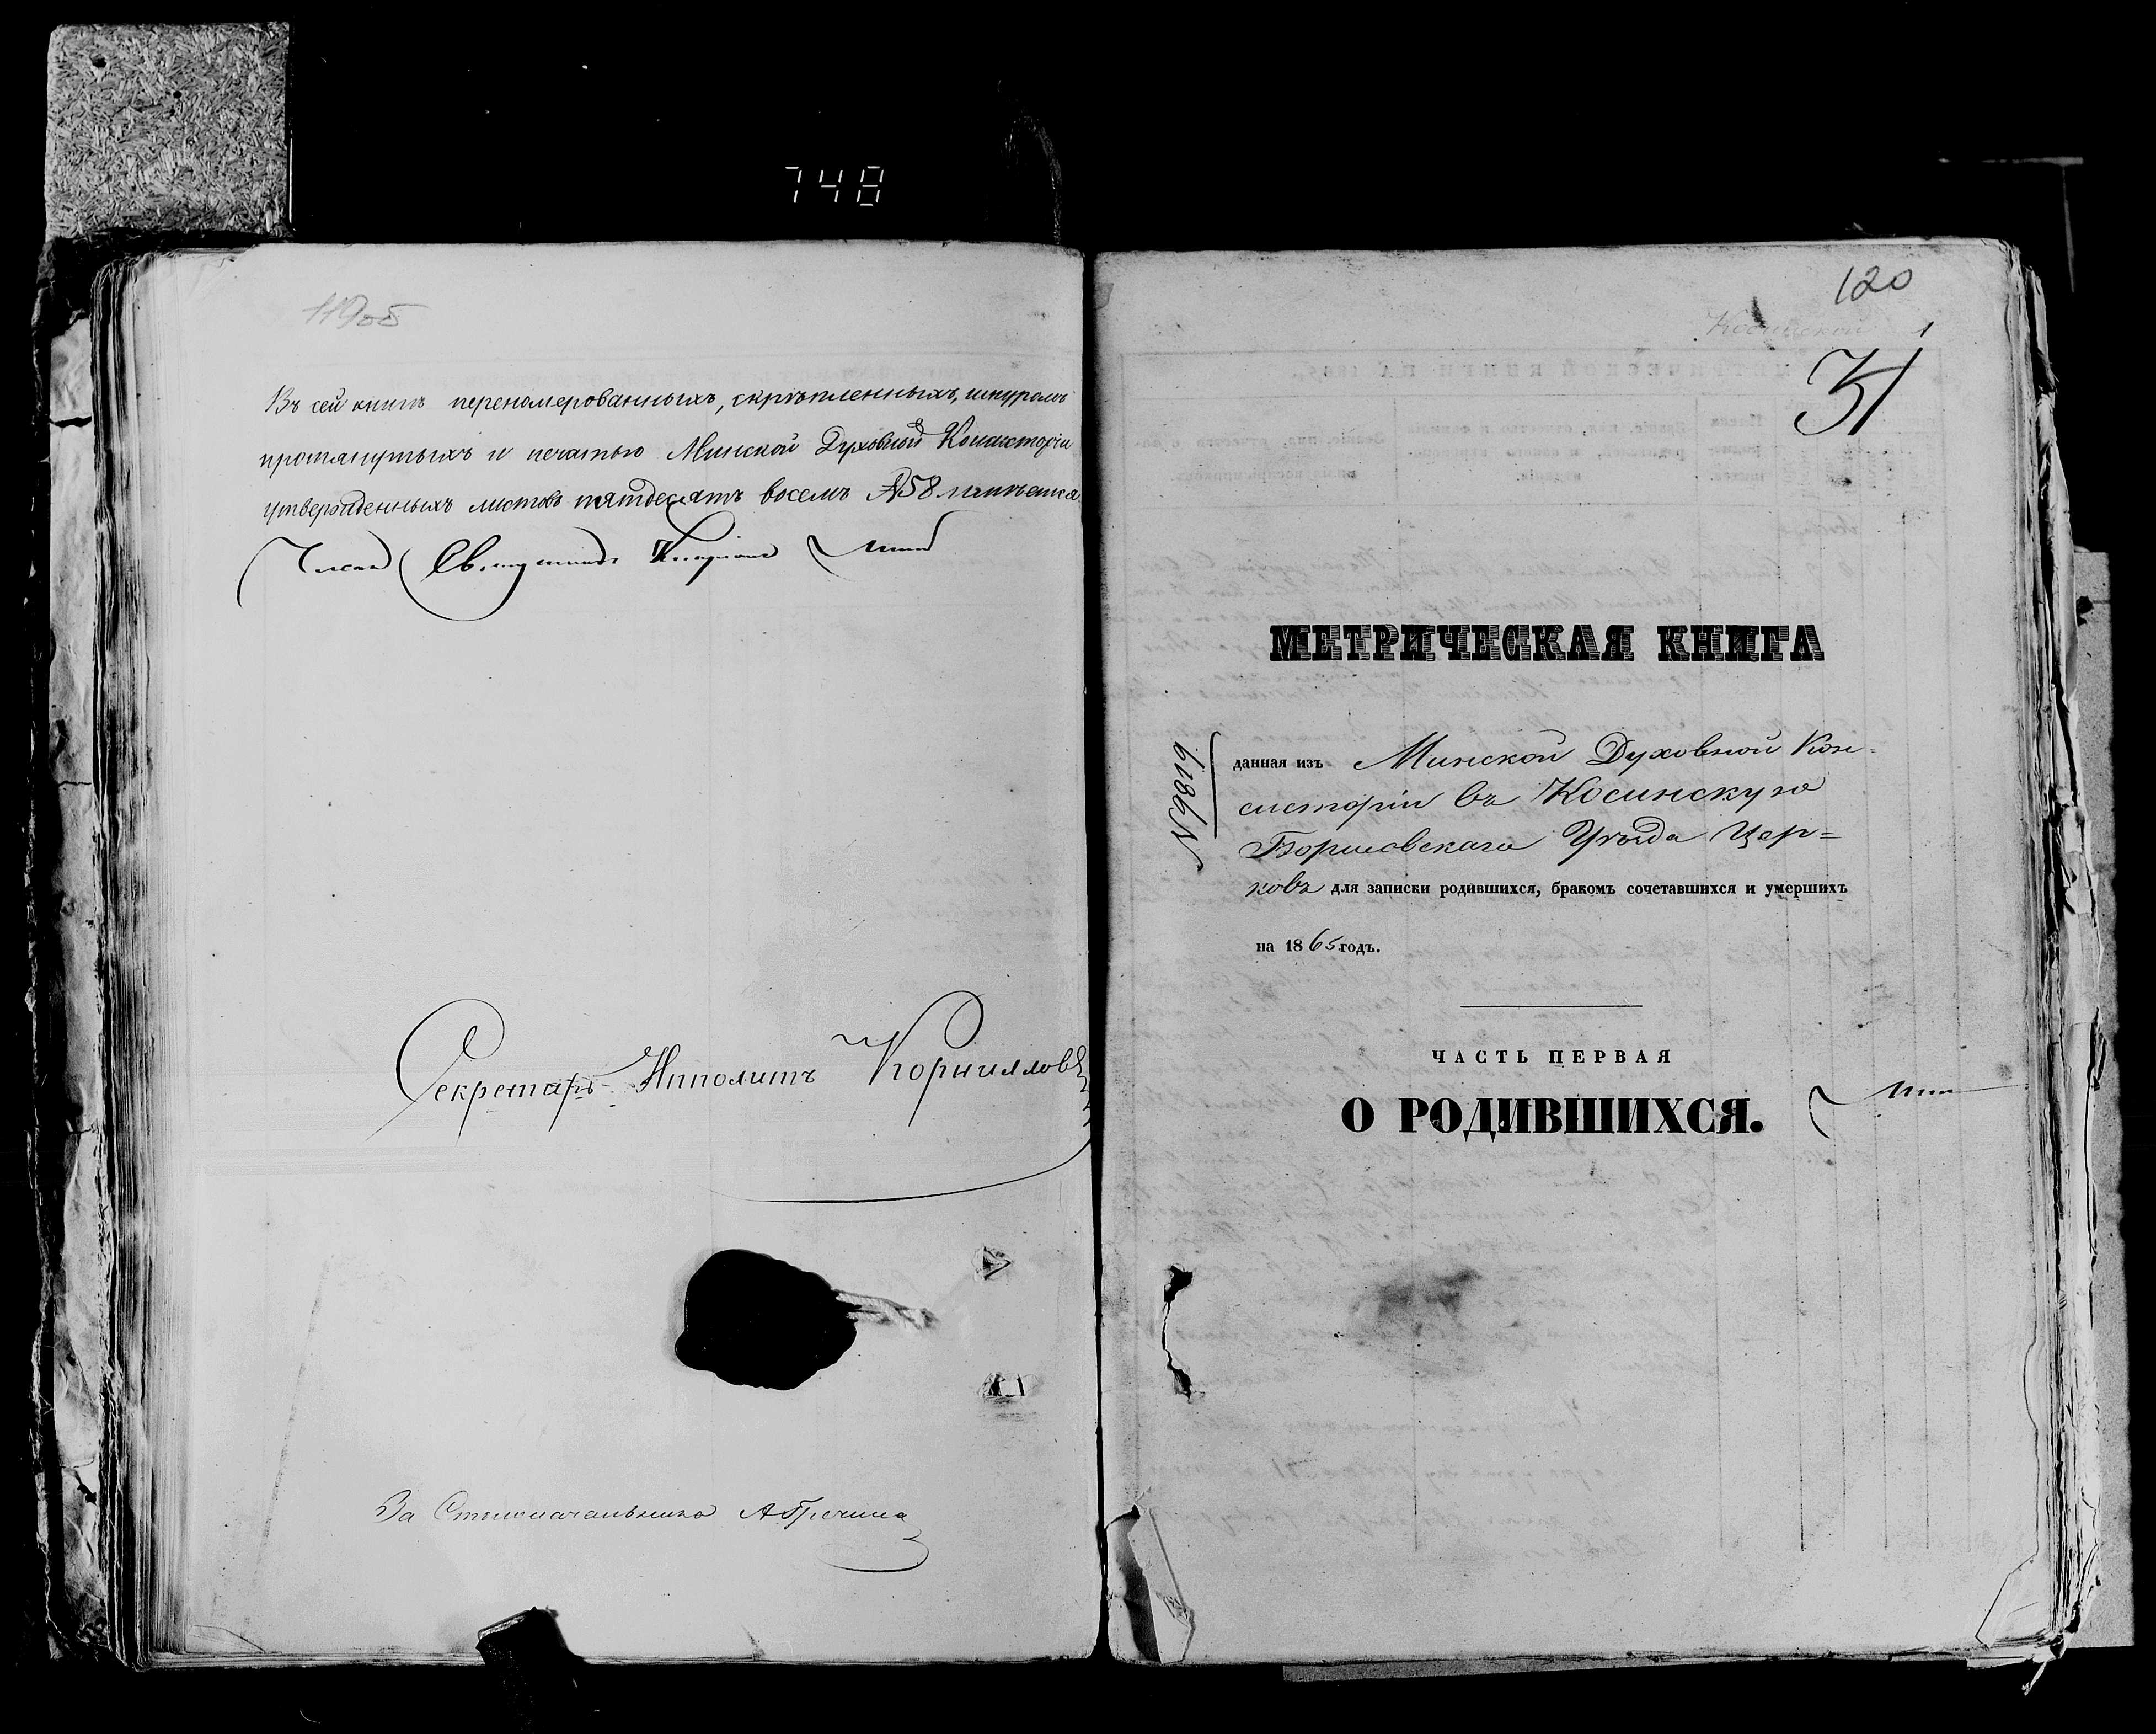 748
119об
Въ сей книгѣ перенумерованныхъ, скрѣпленныхъ, шнуромъ
протянутыхъ и печатью Минской Духовной Консисторіи
утвержденныхъ листовъ пятдесятъ восемь 58
Членъ Священникъ
Секретарь Ипполитъ Корниловъ
За Столоначальника
120
Косинской 1
31
МЕТРИЧЕСКАЯ КНИГА
№9819
данная изъ Минской Духовной Кон-
систоріи въ Косинскую
Борисовскаго Уѣзда Цер=
ковь для записки родившихся, бракомъ сочетавшихся и умершихъ
на 1865 годъ.
ЧАСТЬ ПЕРВАЯ
О РОДИВШИХСЯ.